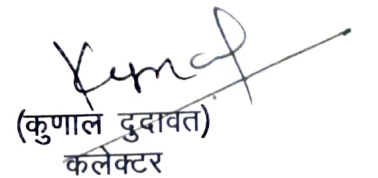 Kunal
(कुणाल दुदावत)
कलेक्टर